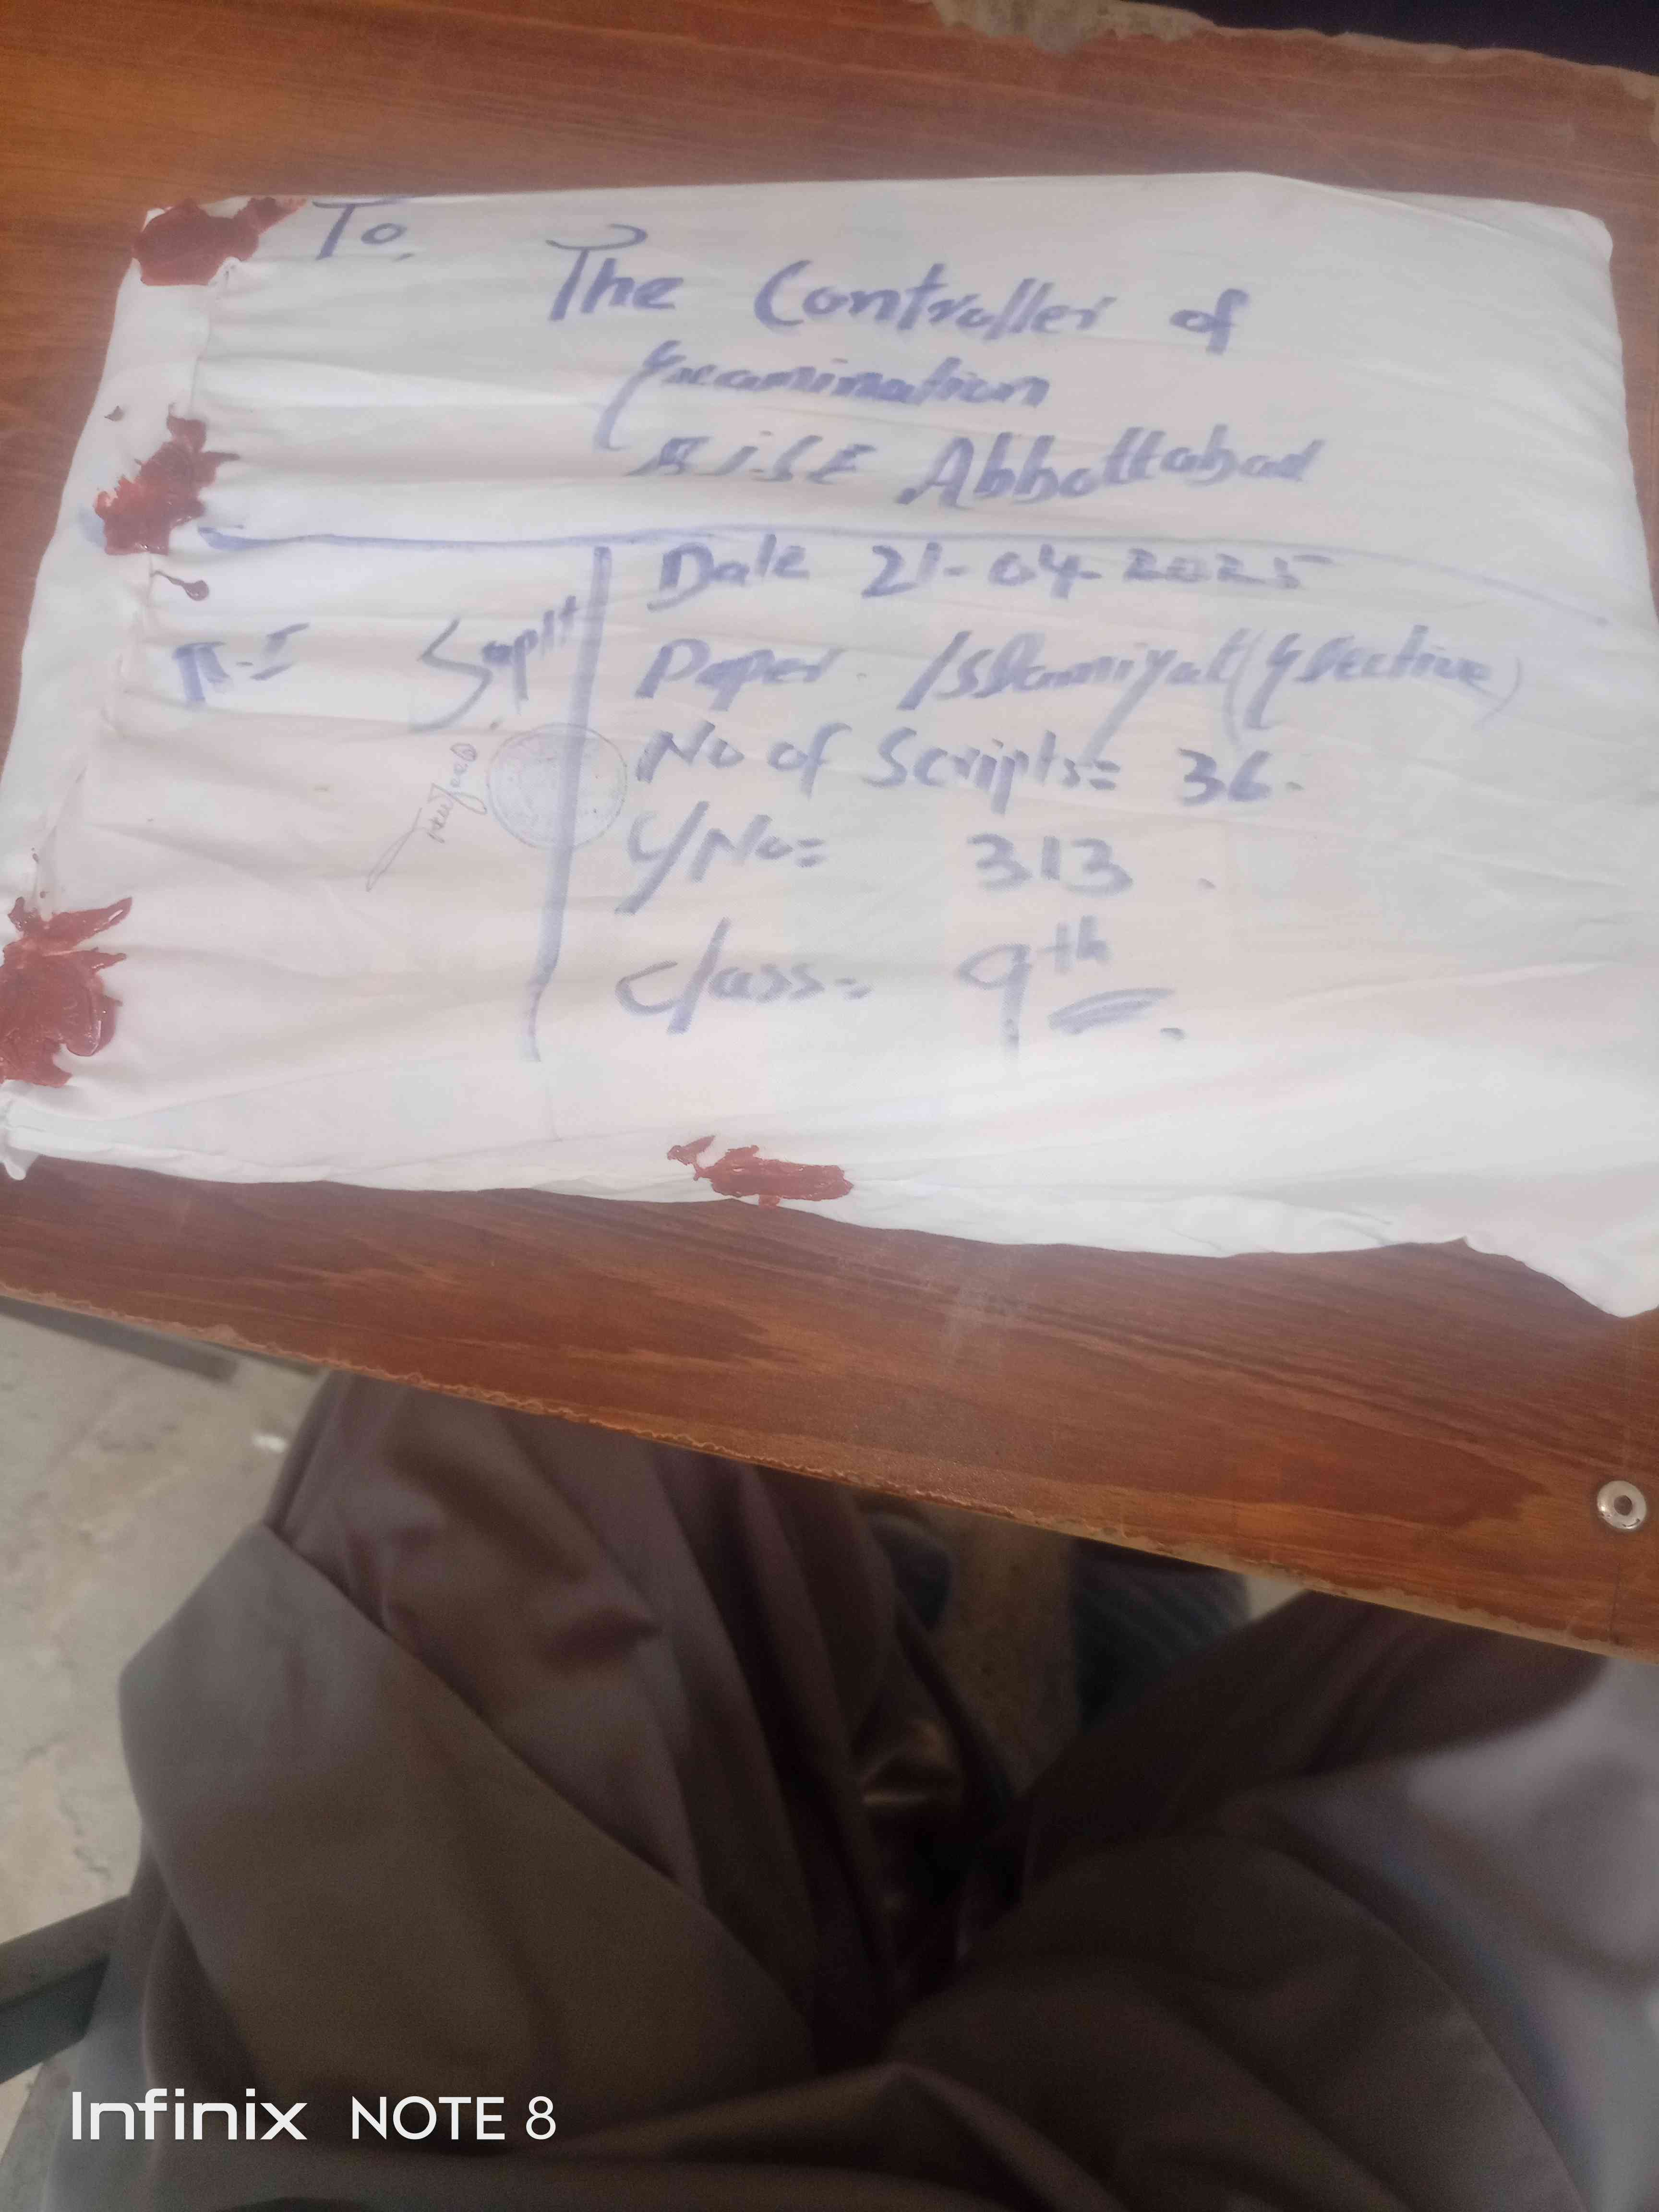 To,
The Controller of
Examination
BISE Abbottabad
Date 21-04-2025
Paper. Islamiyat (Elective)
No of Scripts = 36.
No = 313
Class = 9th
Supdt
Infinix NOTE 8